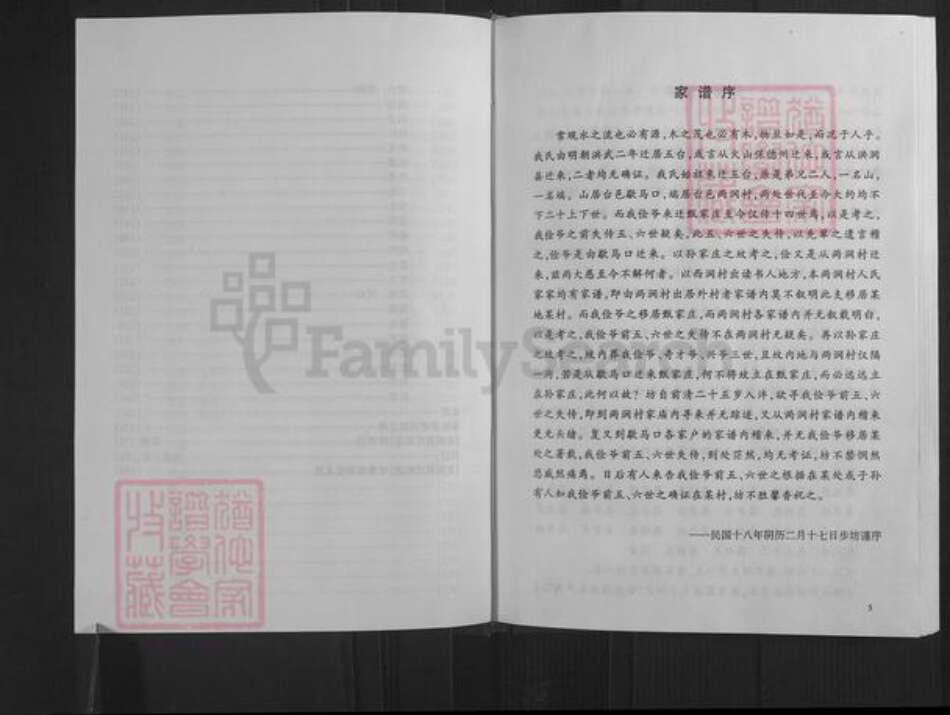 家谱序
常观水之流也必有源，木之茂也必有本，物且如是，而况于人乎。
我氏由明朝洪武二年迁居五台，或言从火山保德州迁来，或言从洪洞
县迁来，二者均无确证。我氏始祖来迁五台，原是弟兄二人，一名山，
一名端。山居台邑歇马口，端居台邑两涧村，两处世代至今大约均不
下二十上下世。而我俭爷来迁甄家庄至今仅传十四世焉，以是考之，
我俭爷之前失传五、六世疑矣，此五、六世之失传，以先辈之遗言稽
之，俭爷是由歇马口迁来。以孙家庄之坟考之，俭又是从两涧村迁
来，兹尚大惑至今不解何者。以西涧村出读书人地方，本两涧村人氏
家家均有家谱，即由两涧村出居外村者家谱内莫不叙明此支移居某
地某村。而我俭爷之移居甄家庄，而两涧村各家谱内并无叙载明白。
以是考之，我俭爷前五、六世之失传不在两涧村无疑矣。再以孙家庄
之坟考之，坟内葬我俭爷、奇才爷、兴爷三世，且坟内地与两涧村仅隔
一河，若是从歇马口迁来甄家庄，何不将坟立在甄家庄，而必远远立
在孙家庄，此何以故？坊自前清二十五岁入泮，欲寻我俭爷前五、六
世之失传，即到两涧村家庙内寻来并无踪迹，又从两涧村家谱内稽来
更无头绪。复又到歇马口各家户的家谱内稽来，并无我俭爷移居某
处之著载，我俭爷前五、六世失传，到处茫然，均无考证，坊不禁惘然
恐戚然痛焉。日后有人来告我俭爷前五、六世之根据在某处或子孙
有人知我俭爷前五、六世之确证在某村，坊不胜馨香祝之。
——民国十八年阴历二月十七日步坊谨序
5
FamilySearch